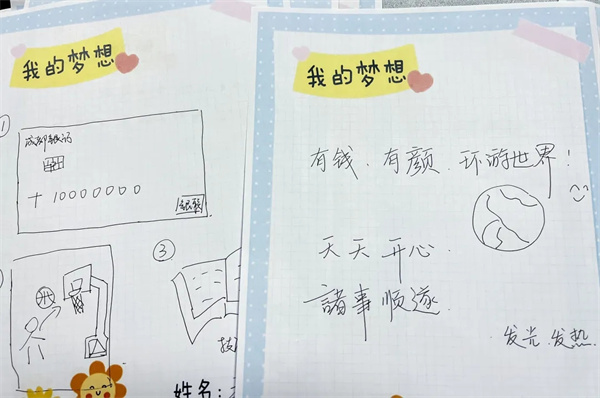 我的梦想
1
成都银行
+10000000
3
姓名:
我的梦想
有钱、有颜、环游世界!
天天开心.
諸事顺遂.
发光.发热.